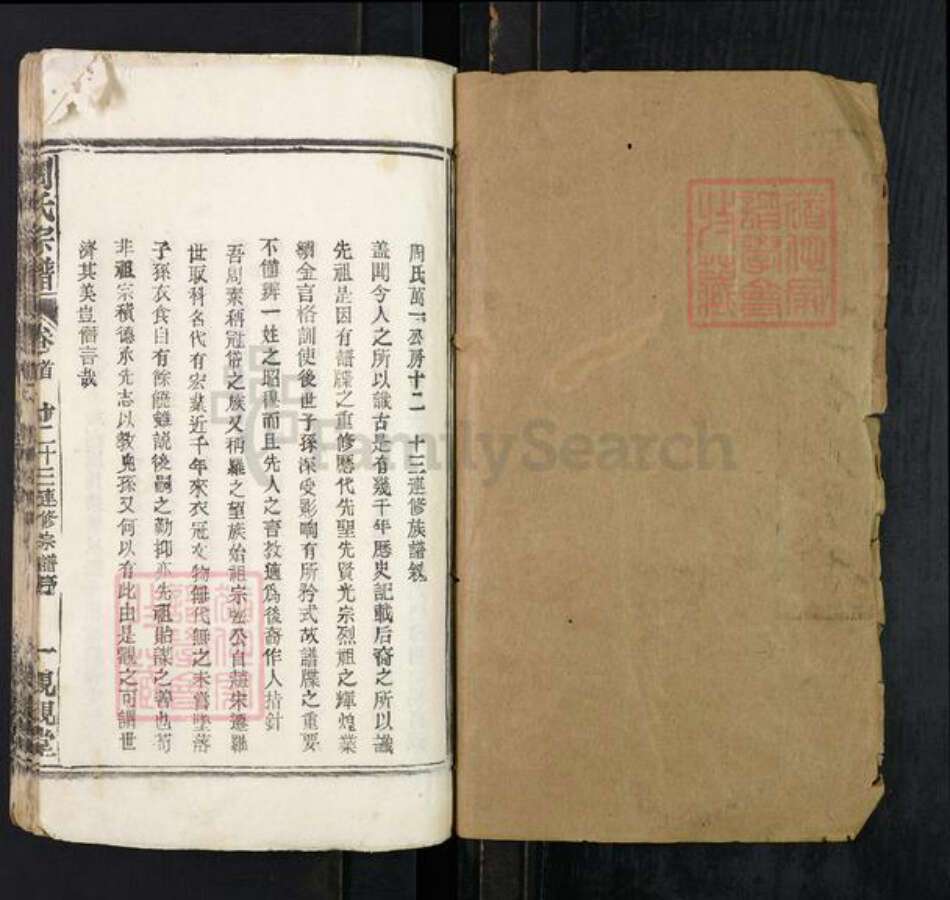 周氏萬一公房十二 十三連修族譜敘
盖聞今人之所以識古是有幾千年歷史記載后裔之所以識
先祖是因有譜牒之重修歷代先聖先賢光宗烈祖之輝煌業
績金言格訓使後世子孫深受影响有所矜式故譜牒之重要
不僅辨一姓之昭穆而且先人之言教適爲後裔作人指針
吾周素稱冠俗之族又称羅之望族始祖宗 公自趙宋遷羅
世取科名代有宏業近千年來衣冠文物無代無之未嘗墜落
子孫衣食自有餘饒雖説後嗣之勤抑亦先祖貽謀之善也苟
非祖宗積德承先志以教兒孫又何以有此由是觀之可謂世
濟其美豈僭言哉
周氏宗譜 卷首 廿二十三連修宗譜 一 硯堂
FamilySearch